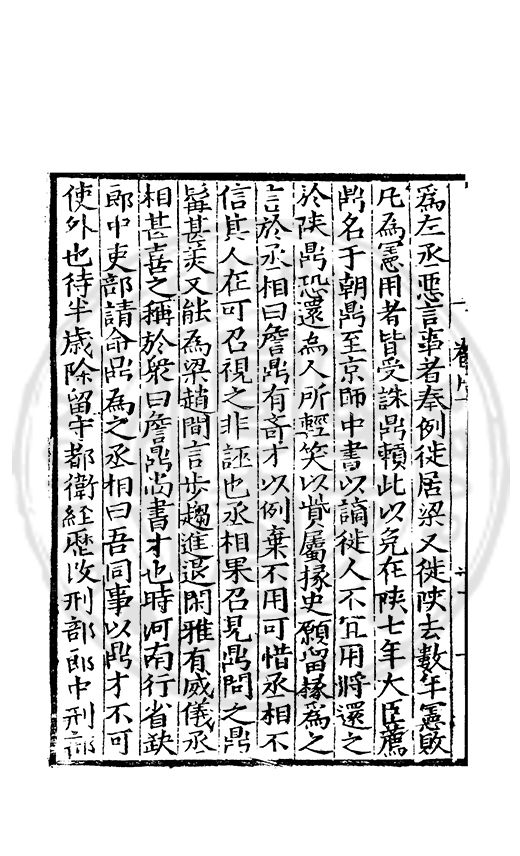 為左丞惡言事者奉例徙居梁又徙陝去數年憲敗
凡為憲用者皆受誅鼎頼此以免在陝七年大臣薦
鼎名于朝鼎至京師中書以謫徙人不冝用將還之
於陝鼎恐還為人所輕笑以貲屬掾史願留掾為之
言於丞相曰詹鼎有竒才以例棄不用可惜丞相不
信其人在可召視之非誣也丞相果召見鼎問之鼎
髯甚美又能為梁趙間言步趨進退閑雅有威儀丞
相甚喜之稱於衆曰詹鼎尚書才也時河南行省缺
郎中吏部請命鼎為之丞相曰吾同事以鼎才不可
使外也待半歲除留守都衛經歷攺刑部郎中刑部